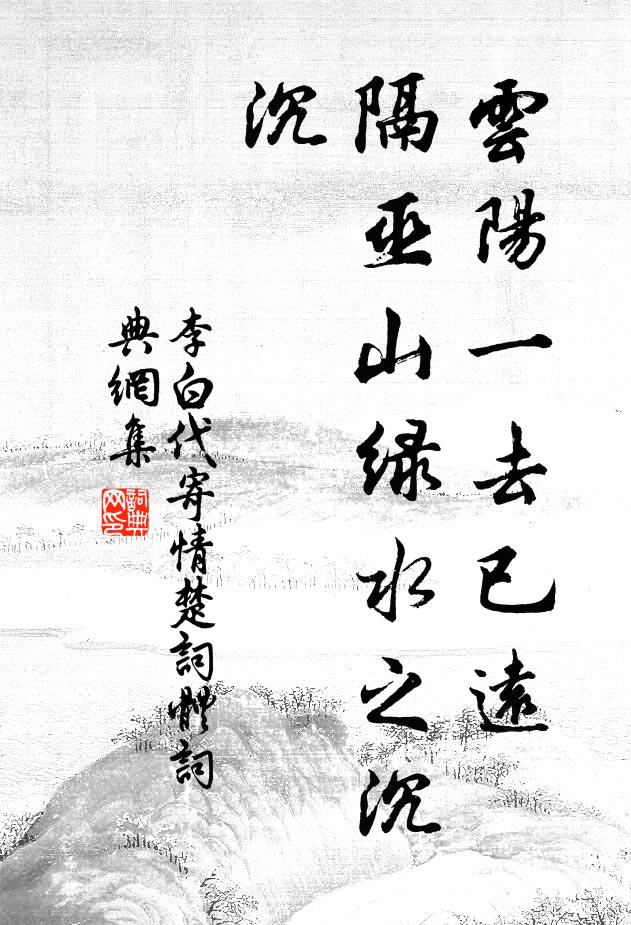 雲陽一去已遠
隔巫山綠水之沉
沉
李白代寄情楚詞體詞
典網集
詞典
网印